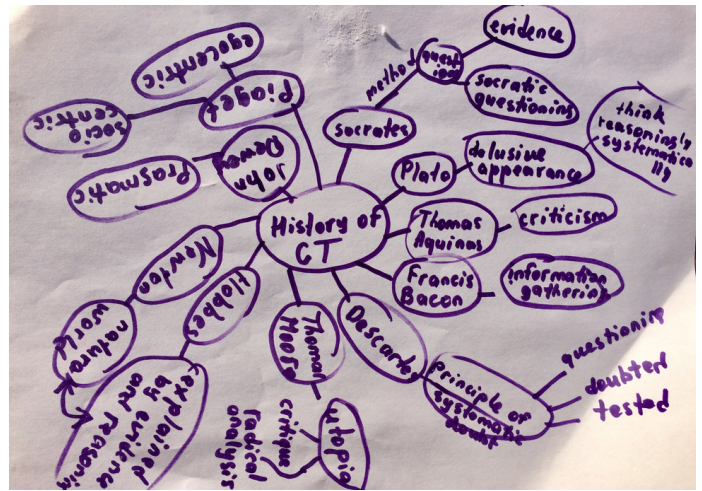 History of
CT
socrates
method
question
evidence
socratic
questioning
Plato
delusive
appearance
think
reasoningly
systematica
lly
Thomas
Aquinas
criticism
Francis
Bacon
information
gathering
Descartes
Principle of
systematic
doubt
questioning
doubted
tested
Thomas
utopia
critique
radical
analysis
Hobbes
explained
by evidence
and reasonin
Newton
natura
world
John
Dewey
Prasmatic
Piaget
egocentric
socio
centric